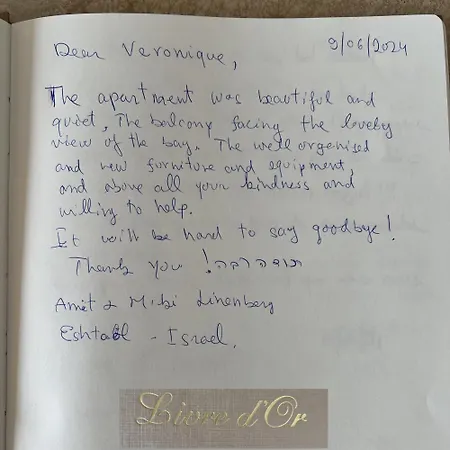 Dear Veronique,
9/06/2024
The apartment was beautiful and
quiet, The balcony facing the lovely
view of the bay. The well organised
and new furniture and equipment,
and above all your kindness and
willing to help.
It will be hard to say goodbye!
Thank you! תודה רבה
Amit & Linenberg
Eshtaol - Israel.
Livre d'Or